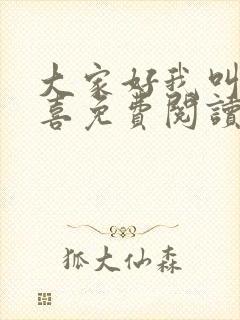 大家好我叫
喜免費閱讀
狐大仙森